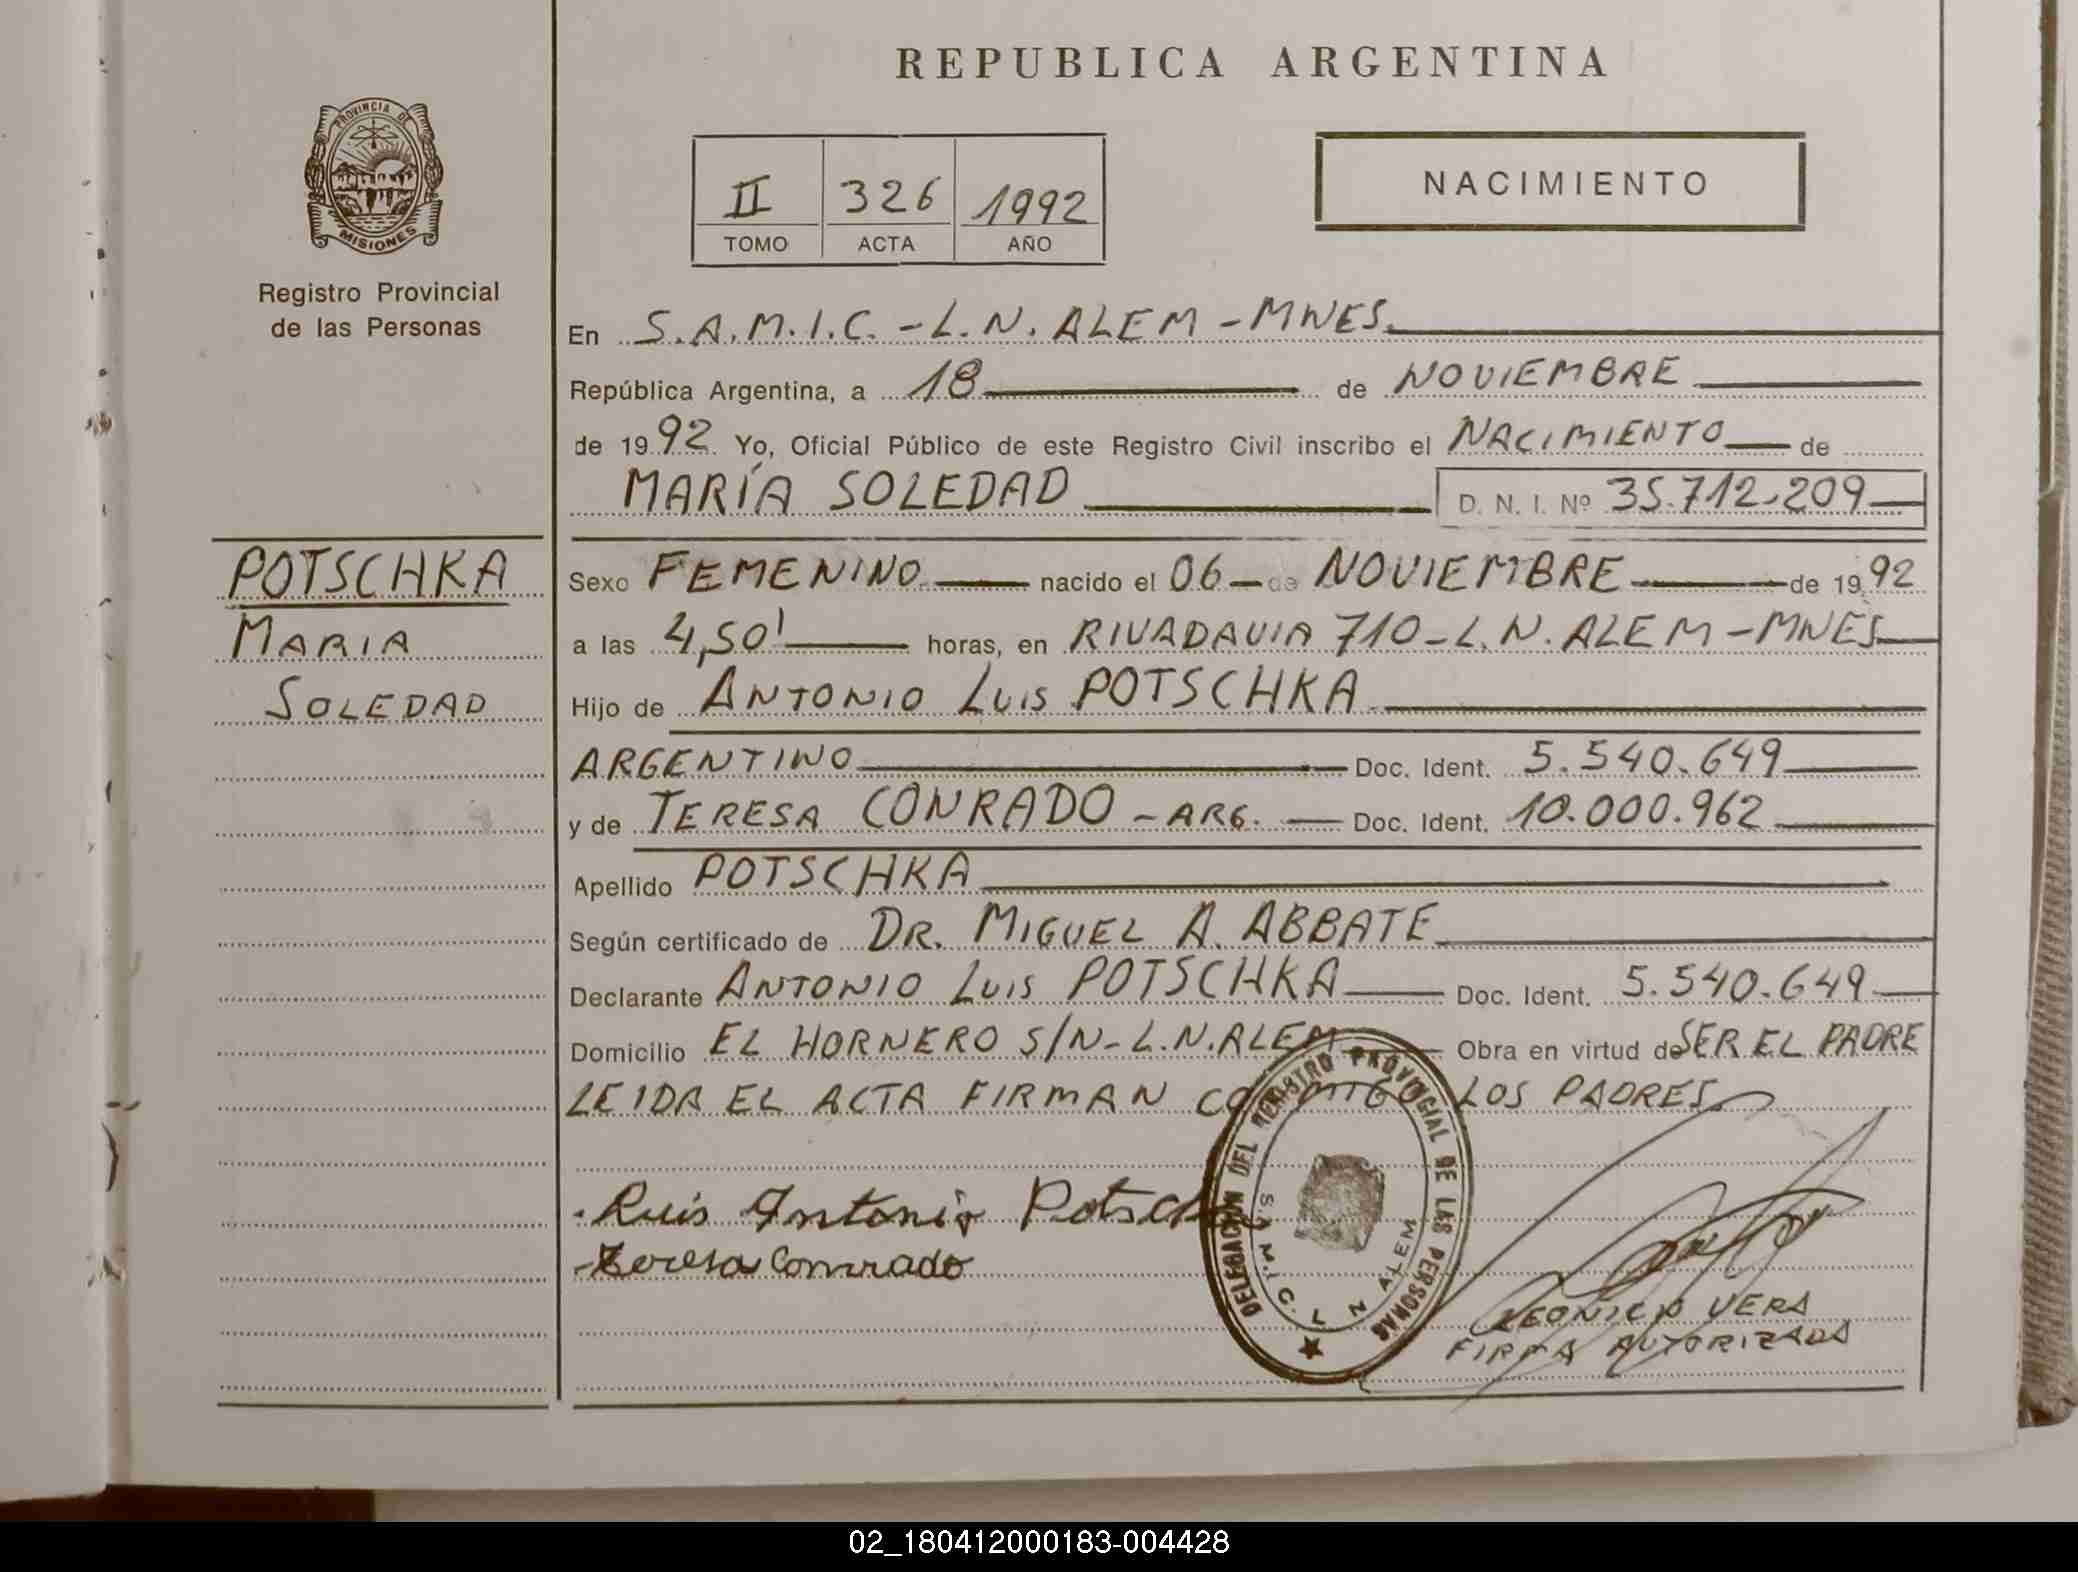 REPUBLICA ARGENTINA
PROVINCIA DE
MISIONES
Registro Provincial
de las Personas
II 326 1992
TOMO ACTA AÑO
NACIMIENTO
En S.A.M.I.C. - L.N. ALEM - MNES.
República Argentina, a 18 de NOVIEMBRE
de 1992 Yo, Oficial Público de este Registro Civil inscribo el NACIMIENTO de
MARÍA SOLEDAD D. N. I. Nº 35.712.209
POTSCHKA
MARIA
SOLEDAD
Sexo FEMENINO nacido el 06 de NOVIEMBRE de 1992
a las 4,50' horas, en RIVADAVIA 710 - L.N. ALEM - MNES
Hijo de ANTONIO LUIS POTSCHKA
ARGENTINO Doc. Ident. 5.540.649
y de TERESA CONRADO - ARG. Doc. Ident. 10.000.962
Apellido POTSCHKA
Según certificado de DR. MIGUEL A. ABBATE
Declarante ANTONIO LUIS POTSCHKA Doc. Ident. 5.540.649
Domicilio EL HORNERO S/N - L.N. ALEM Obra en virtud de SER EL PADRE
LEIDA EL ACTA FIRMAN CONMIGO LOS PADRES.
DELEGACION DEL REGISTRO PROVINCIAL DE LAS PERSONAS
S.A.M.I.C. L N ALEM
Luis Antonio Potschka
Teresa Conrado
LEONICIO VERA
FIRMA AUTORIZADA
02_180412000183-004428